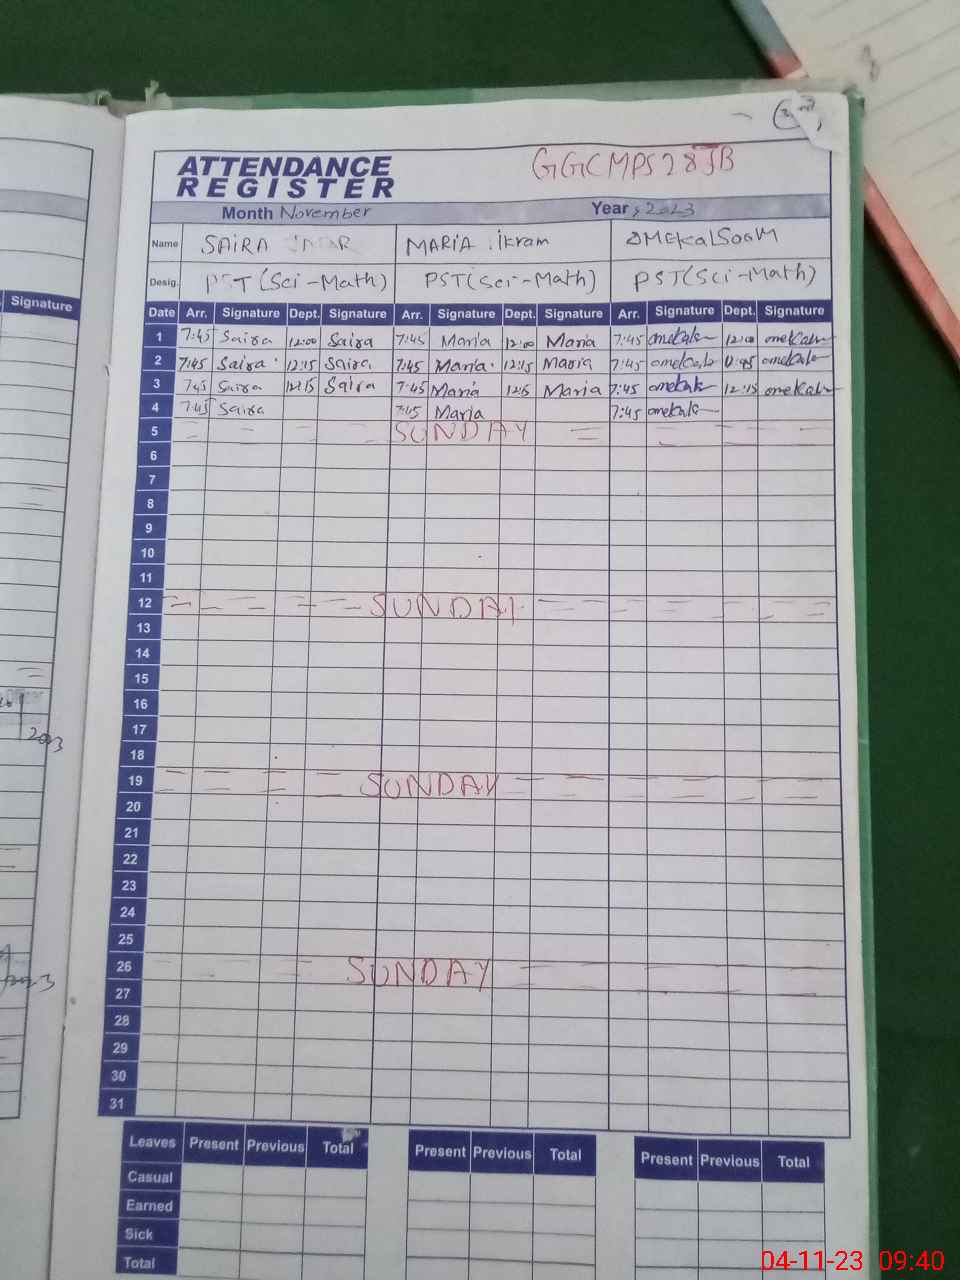 2nd
ATTENDANCE
REGISTER
GGCMPS 28JB
Month November Year 2023
Name SAIRA MARIA ikram OMEKalSooM
Desig. PST (Sci-Math) PST (Sci-Math) PST (Sci-Math)
Signature
Date Arr. Signature Dept. Signature Arr. Signature Dept. Signature Arr. Signature Dept. Signature
1 7:45 Saira 12:00 Saira 7:45 Maria 12:00 Maria 7:45 omekals 12:00 omekals
2 7:45 Saira 12:15 Saira 7:45 Maria 12:15 Maria 7:45 omekals omekals
3 7:45 Saira 12:15 Saira 7:45 Maria 12:15 Maria 7:45 omekals 12:15 omekals
4 7:45 Saira 7:45 Maria 7:45 omekals
5 SUNDAY
6
7
8
9
10
11
12 SUNDAY
13
14
15
16
17
2023
18
19 SUNDAY
20
21
22
23
24
25
26 SUNDAY
27
28
29
30
31
Leaves Present Previous Total Present Previous Total Present Previous Total
Casual
Earned
Sick
Total
04-11-23 09:40